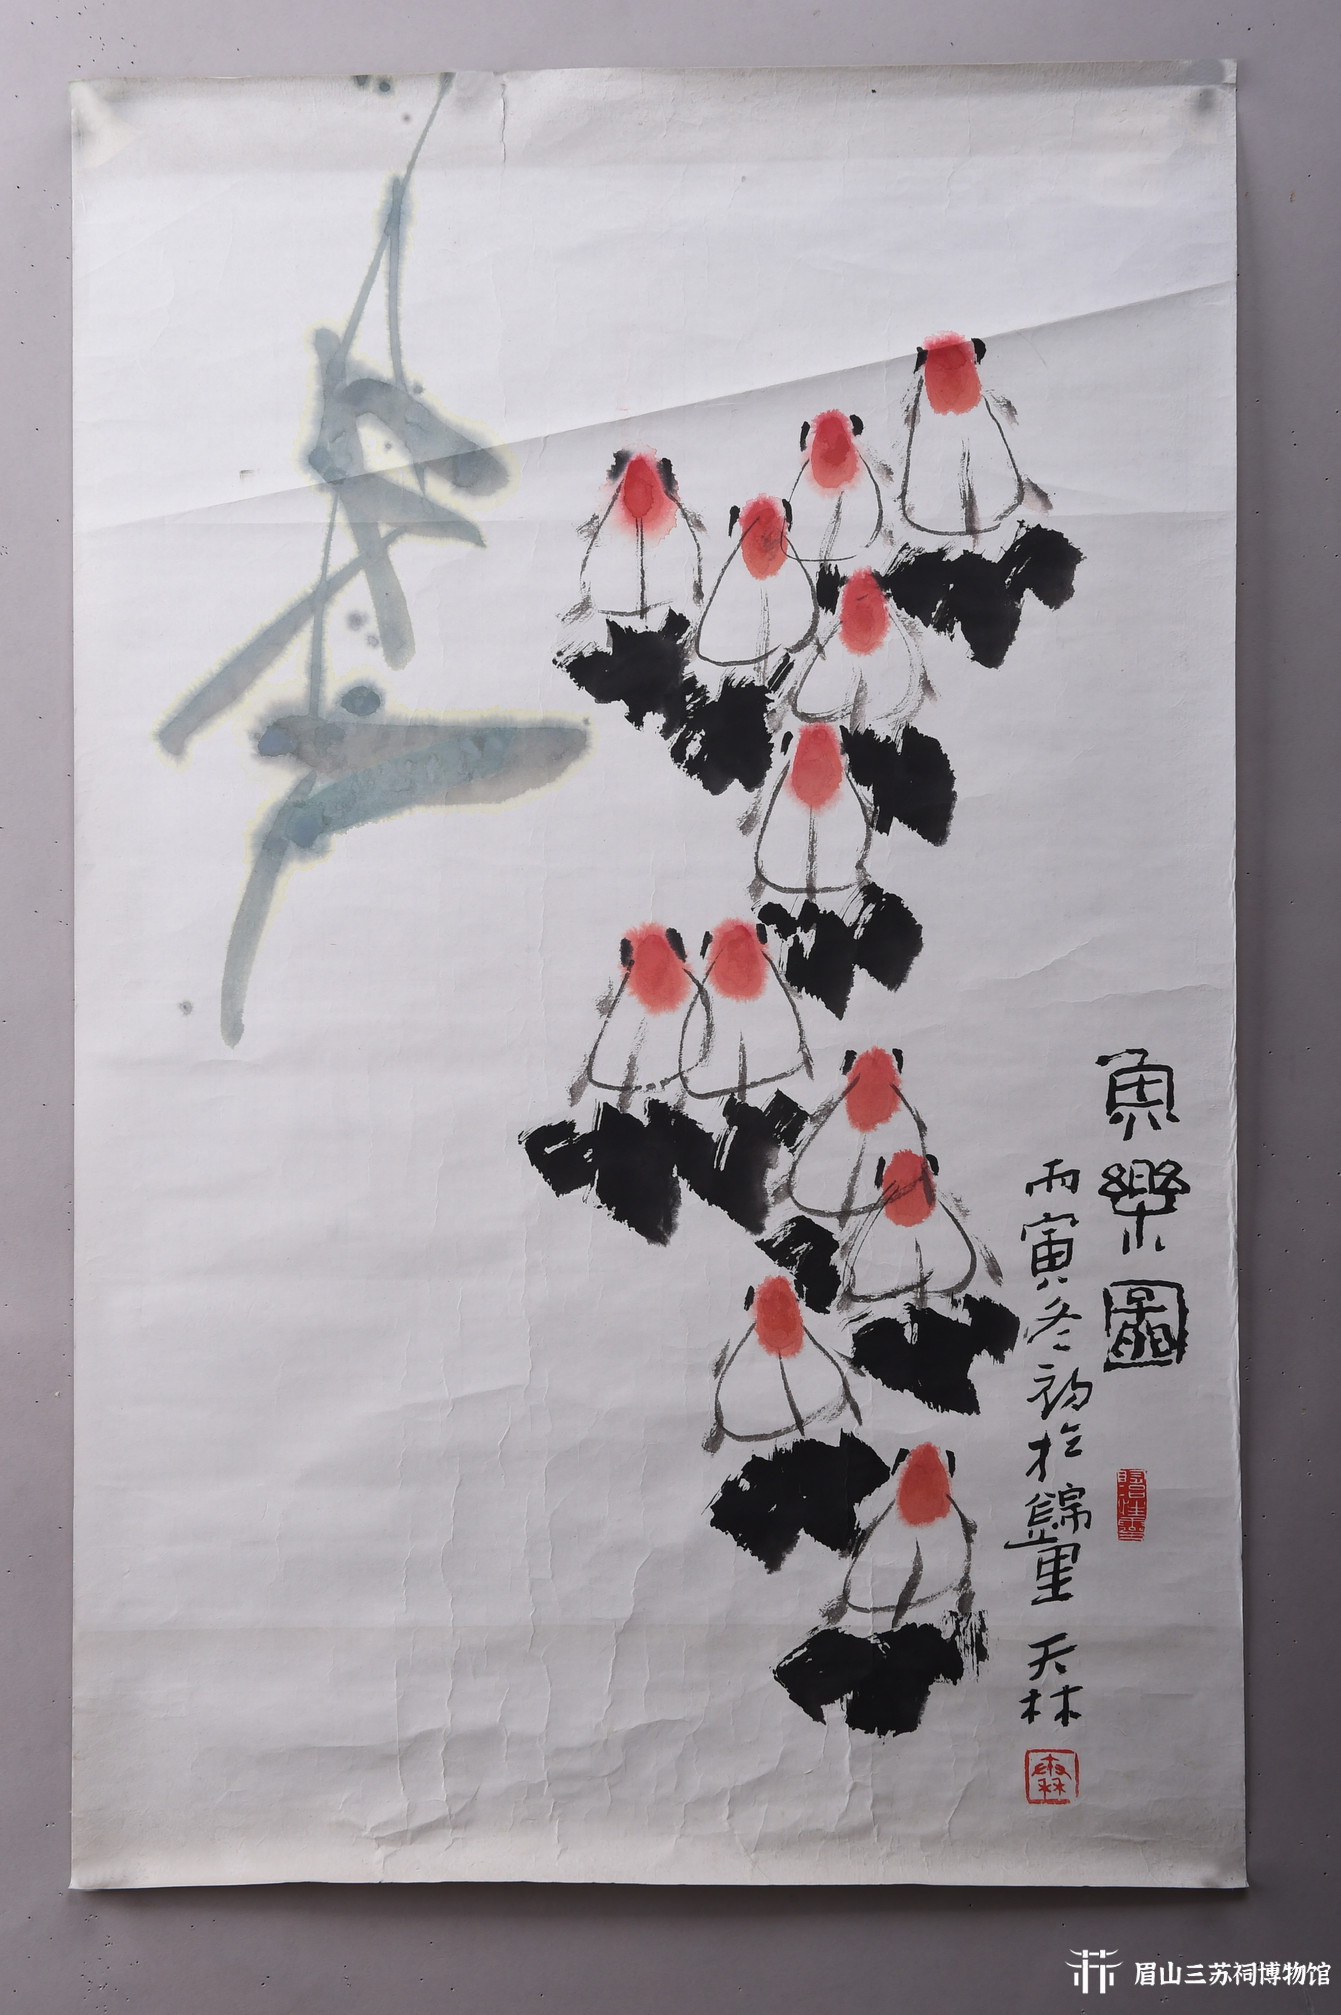 魚樂圖
丙寅冬初於錦里 天林
眉山三苏祠博物馆